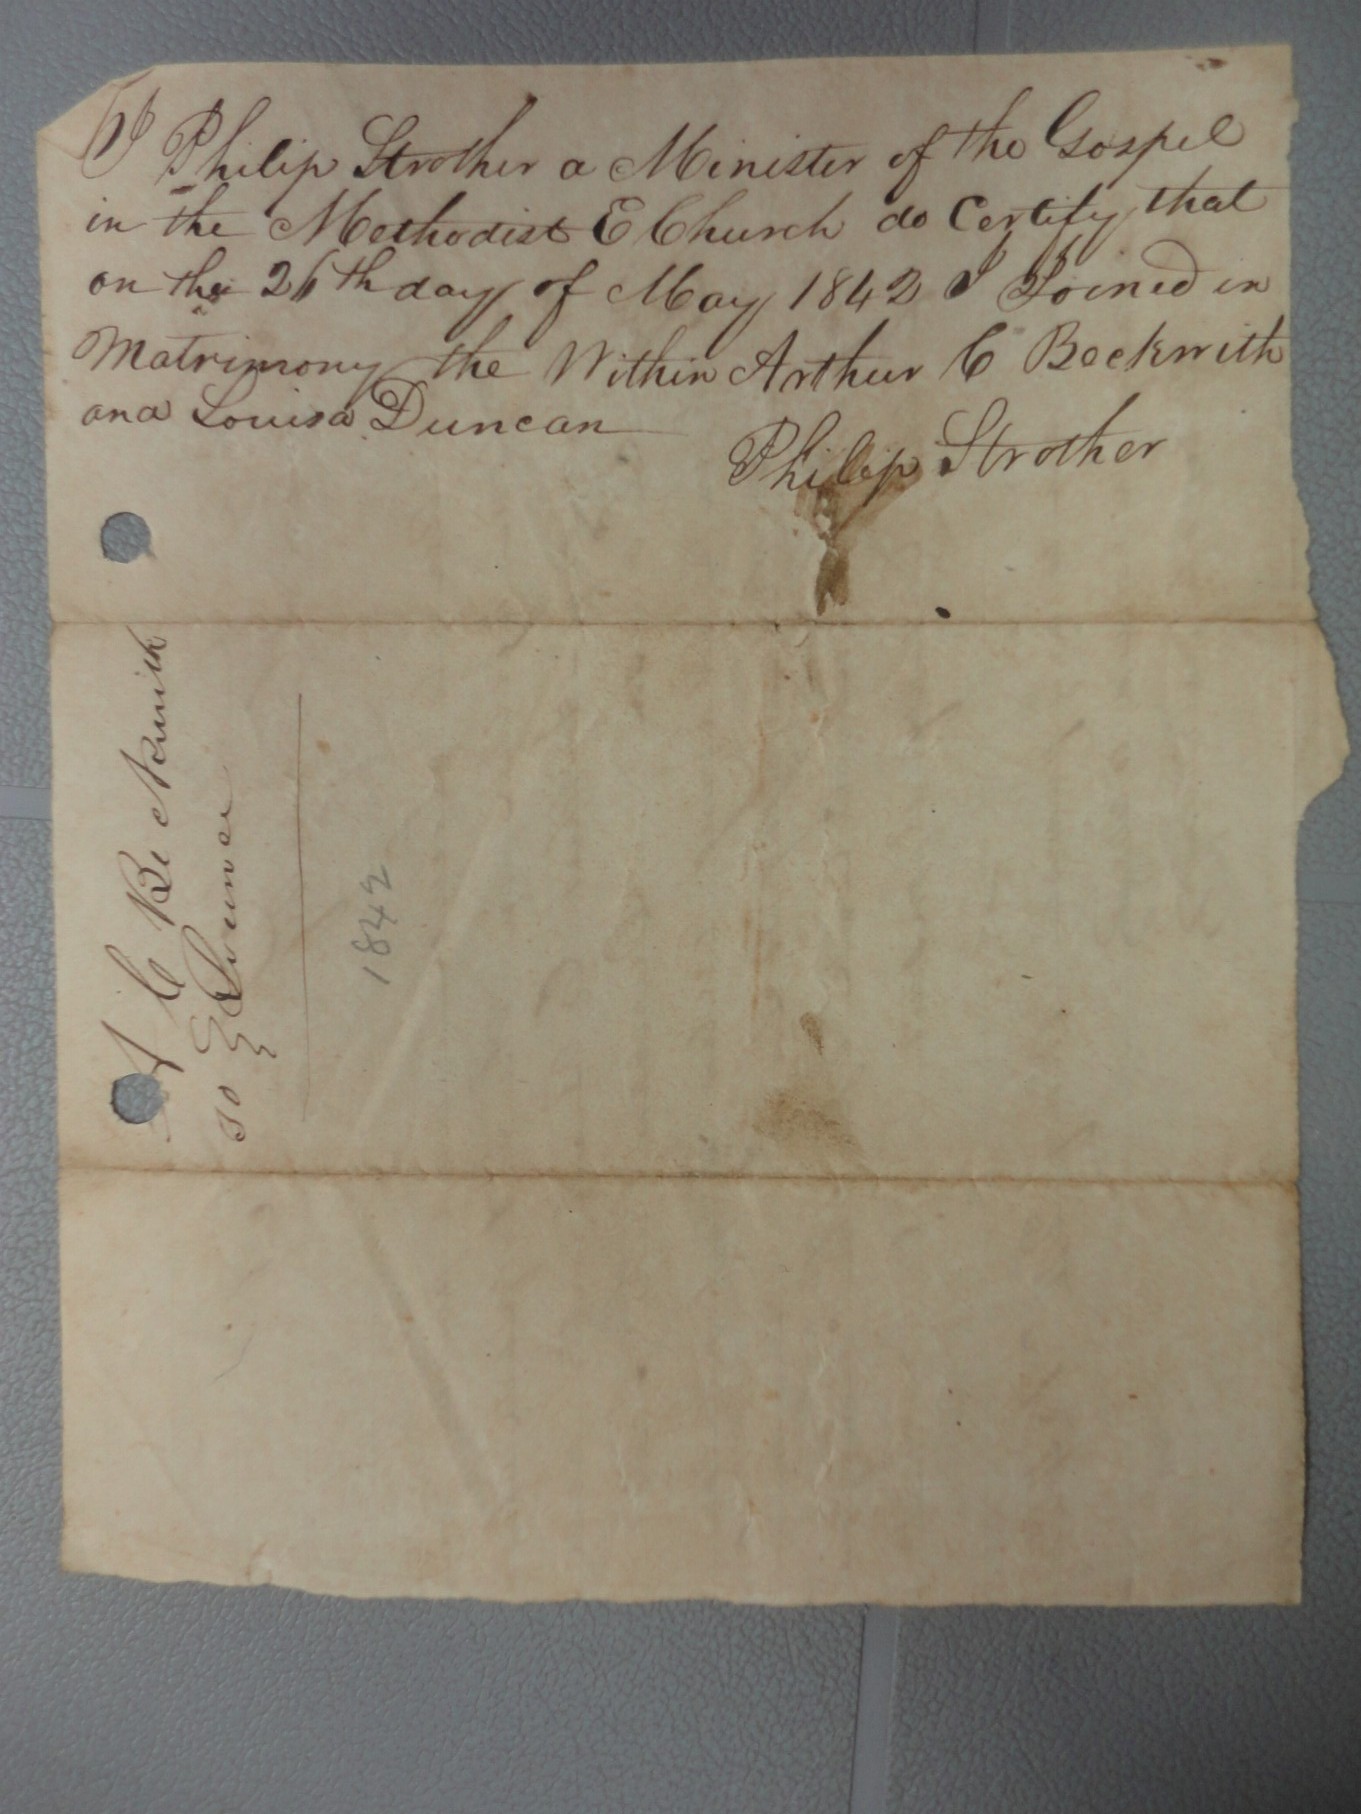 I Philip Strother a Minister of the Gospel
in the Methodist E Church do Certify that
on the 26th day of May 1842 I Joined in
Matrimony the Within Arthur C Beckwith
and Louisa Duncan
Philip Strother
A C Beckwith
to
1842